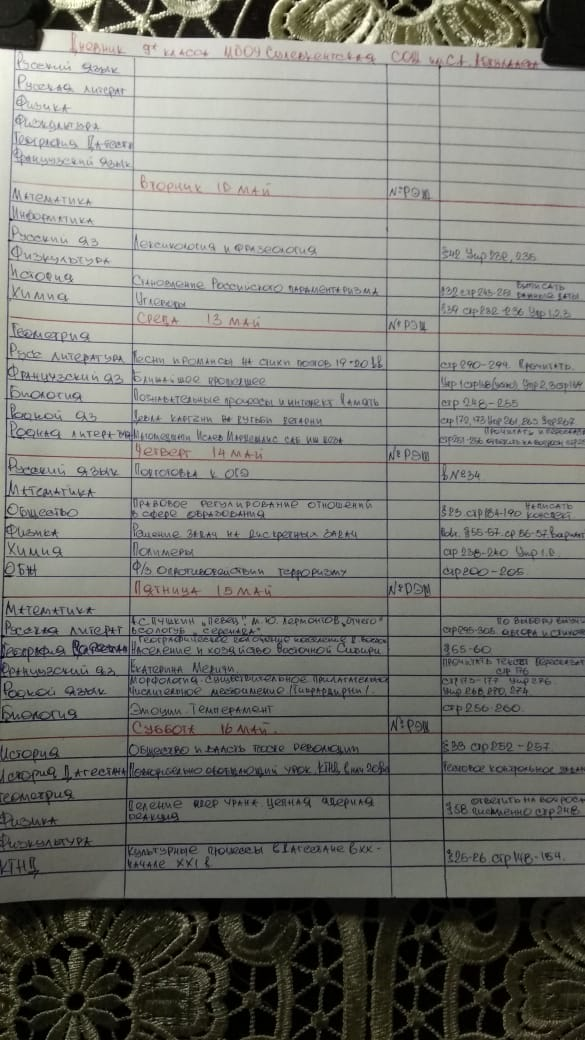 Дневник 9 класса МБОУ СОШ им. С.А.
Русский язык
Русская литерат
Физика
Физкультура
География Дагест
Французский язык
Вторник МАЙ №РЭШ
Математика
Информатика
Русский яз Лексикология и фразеология §42 Упр 232, 235
Физкультура
История Становление Российского парламентаризма §32 стр выписать важные даты
Химия Углероды §39 стр 232-236 Упр 1,2,3
Среда 13 МАЙ №РЭШ
Геометрия
Русс литература Песни и романсы на стихи поэтов 19-20вв стр 290-294. Прочитать.
Французский яз Ближайшее прошедшее Упр Упр 2,3 стр
Биология Познавательные процессы и интелект. Память стр 248-255
Родной яз стр 172,173 Упр 261
Родная литерату Прочитать и
Четверг 14 МАЙ №РЭШ
Русский язык Подготовка к ОГЭ в №34
Математика
Общество Правовое регулирование отношений в сфере образования §23 стр 184-190 написать конспект
Физика Решение задач §55-57 стр 56-57 Вариант
Химия Полимеры стр 238-240 Упр
ОБЖ Ф/з о противодействии терроризму стр 200-205
Пятница 15 МАЙ №РЭШ
Математика
Русская литерат А.С.Пушкин "Певец". М.Ю. Лермонтов "Отчего" В.Сологуб "Серенада" стр 295-305 По выбору автора и
География Географическое положение население и хозяйство Восточной Сибири §55-60
Французский яз Екатерина Медичи. Прочитать текст, пересказать стр 176
Родной язык Морфология. Существительное прилагательное числительное местоимение стр 175-177 Упр 276 Упр 268, 270, 274
Биология Эмоции. Темперамент стр 256-260.
Суббота 16 МАЙ. №РЭШ
История Общество и власть после революции §33 стр 252-257.
История Дагестана обобщающий урок Тестовое контрольное задан
Геометрия
Физика Деление ядер урана. Цепная ядерная реакция §58 ответить на вопросы письменно стр 248
Физкультура
КТНД Культурные процессы в Дагестане в XX-начале XXI в §25-26 стр 148-154.